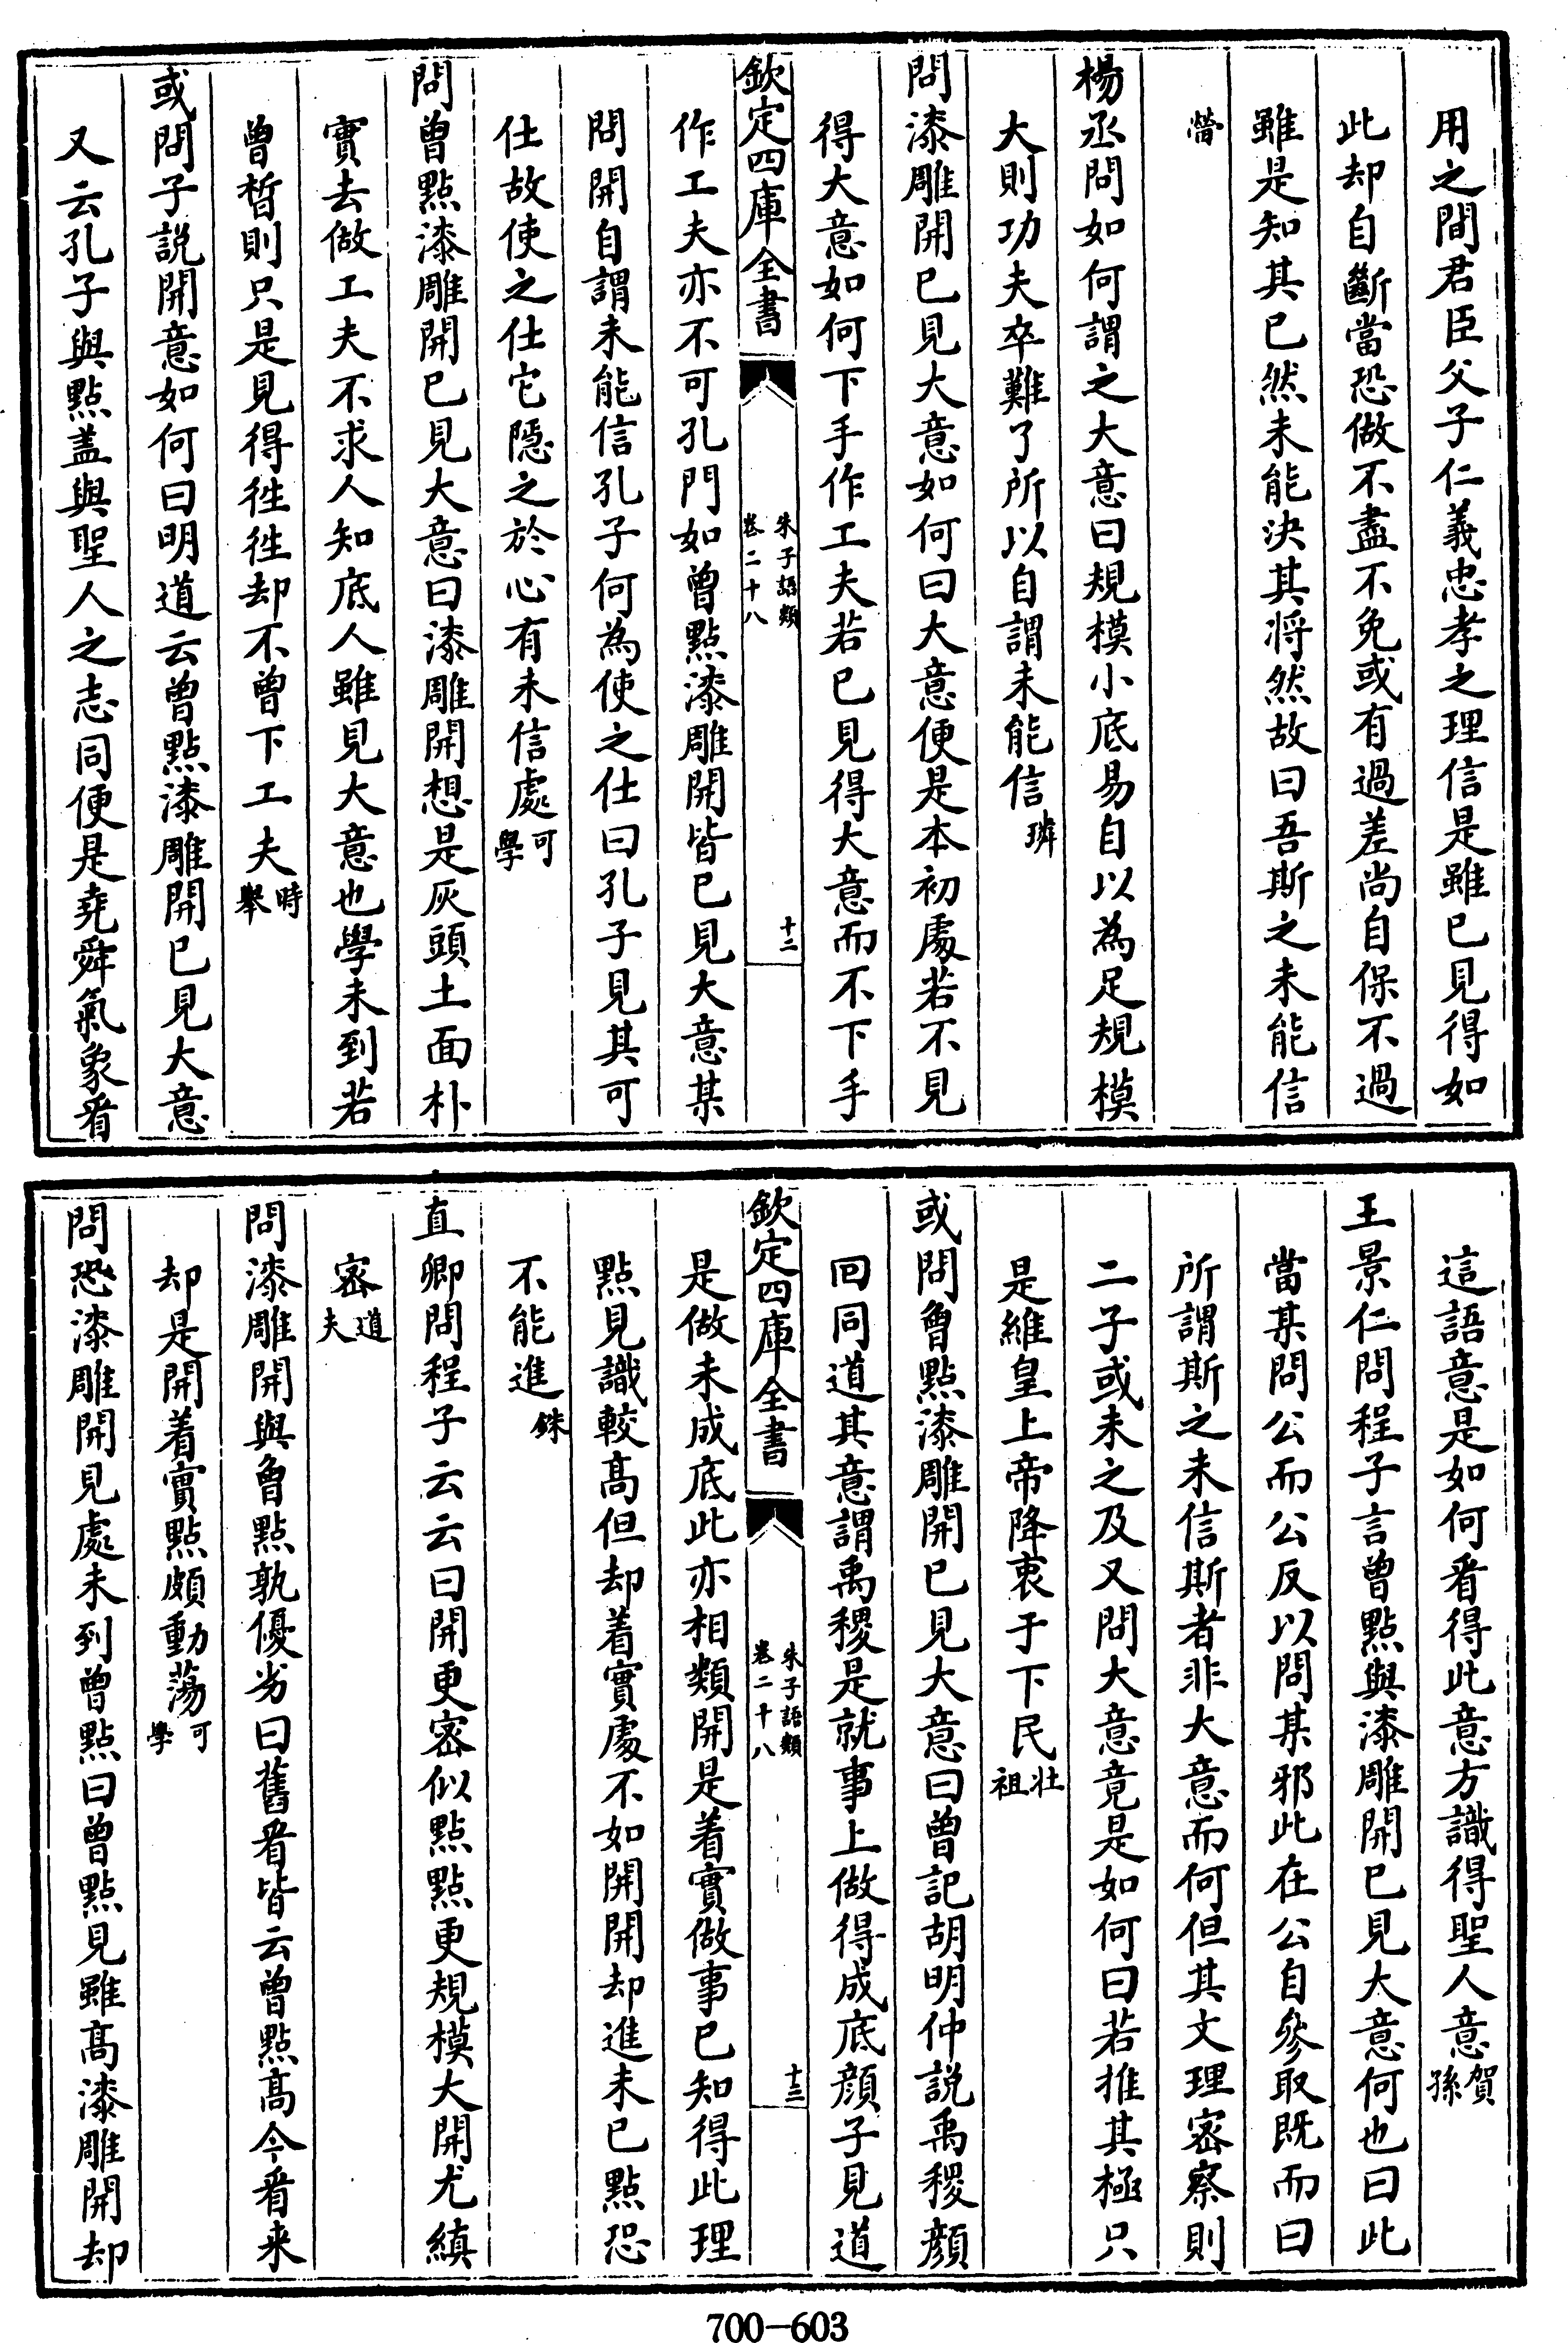 用之間君臣父子仁義忠孝之理信是雖已見得如
此却自斷當恐做不盡不免或有過差尚自保不過
雖是知其已然未能決其將然故曰吾斯之未能信
㽦
楊丞問如何謂之大意曰規模小底易自以為足規模
大則功夫卒難了所以自謂未能信 璘
問漆雕開已見大意如何曰大意便是本初處若不見
得大意如何下手作工夫若已見得大意而不下手
欽定四庫全書 朱子語類 卷二十八 十二
作工夫亦不可孔門如曾點漆雕開皆已見大意某
問開自謂未能信孔子何為使之仕曰孔子見其可
仕故使之仕它隠之於心有未信處 可學
問曾點漆雕開已見大意曰漆雕開想是灰頭土面朴
實去做工夫不求人知底人雖見大意也學未到若
曾晳則只是見得徃徃却不曾下工夫 時舉
或問子說開意如何曰明道云曾點漆雕開已見大意
又云孔子與點盖與聖人之志同便是堯舜氣象看
這語意是如何看得此意方識得聖人意 賀孫
王景仁問程子言曾點與漆雕開已見大意何也曰此
當某問公而公反以問某邪此在公自參取既而曰
所謂斯之未信斯者非大意而何但其文理密察則
二子或未之及又問大意竟是如何曰若推其極只
是維皇上帝降衷于下民 壯祖
或問曾點漆雕開已見大意曰曾記胡明仲說禹稷顏
回同道其意謂禹稷是就事上做得成底顏子見道
欽定四庫全書 朱子語類 卷二十八 十三
是做未成底此亦相類開是着實做事已知得此理
點見識較髙但却着實處不如開開却進未已點恐
不能進 銖
直卿問程子云云曰開更密似點點更規模大開尤縝
密 道夫
問漆雕開與曾點孰優劣曰舊看皆云曾點髙今看来
却是開着實點頗動蕩 可學
問恐漆雕開見處未到曾點曰曾點見雖髙漆雕開却
700-603